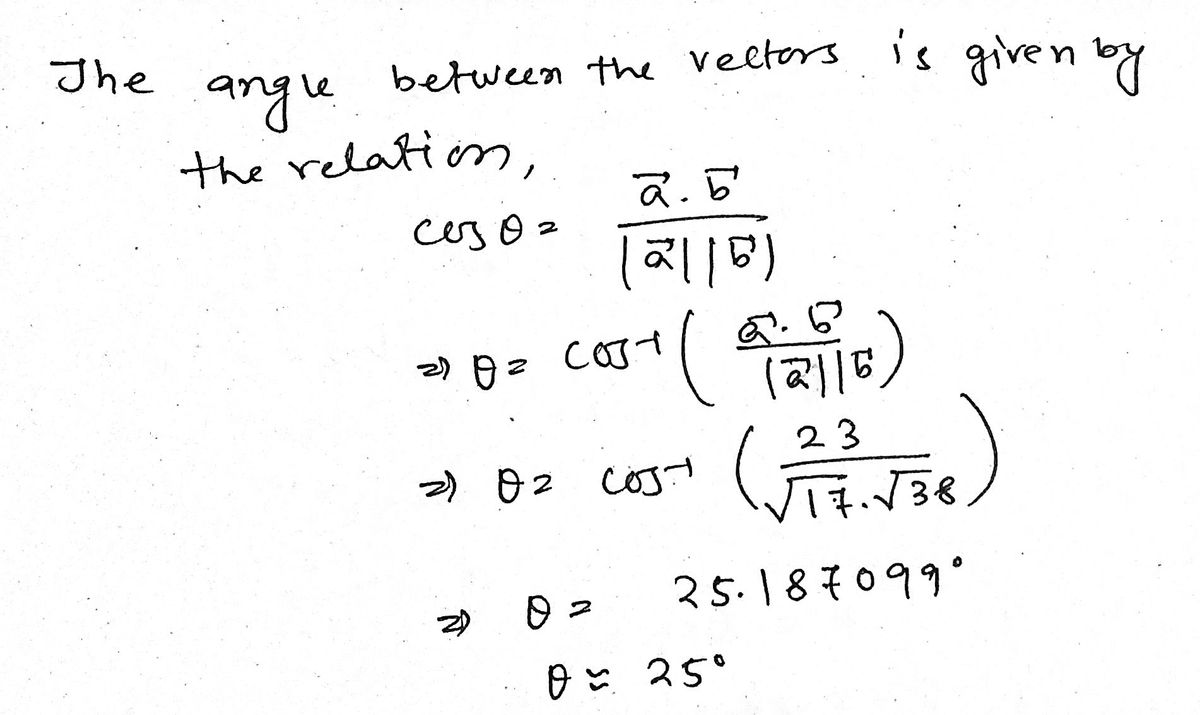 The angle between the vectors is given by
the relation,
cos θ = a⃗.b⃗ / |a⃗||b⃗|
⇒ θ = cos⁻¹ ( a⃗.b⃗ / |a⃗||b⃗| )
⇒ θ = cos⁻¹ ( 23 / √17.√38 )
⇒ θ = 25.187099°
θ ≈ 25°